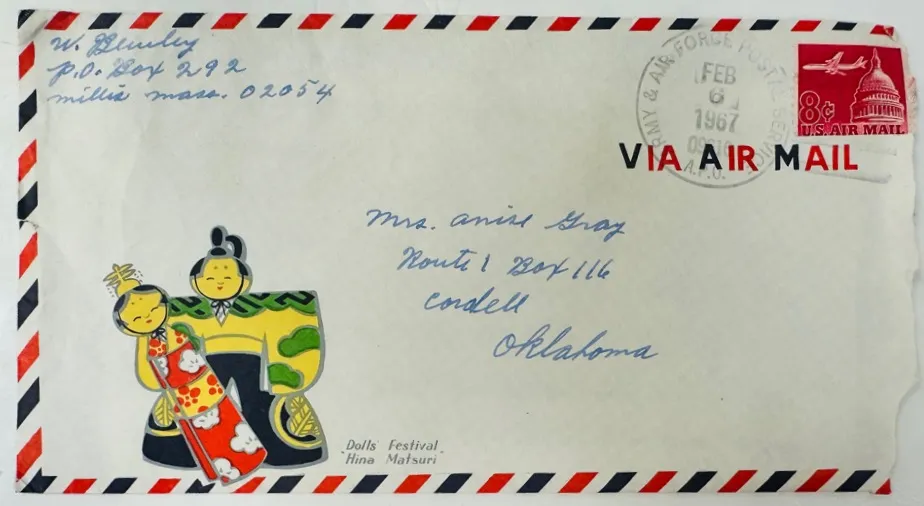 W.
P.O. Box 292
millis mass. 02054
ARMY & AIR FORCE POSTAL SERVICE
FEB
6
1967
A.P.O.
8¢
U.S. AIR MAIL
VIA AIR MAIL
Mrs. Anise Gray
Route 1 Box 116
Cordell
Oklahoma
Dolls Festival
"Hina Matsuri"